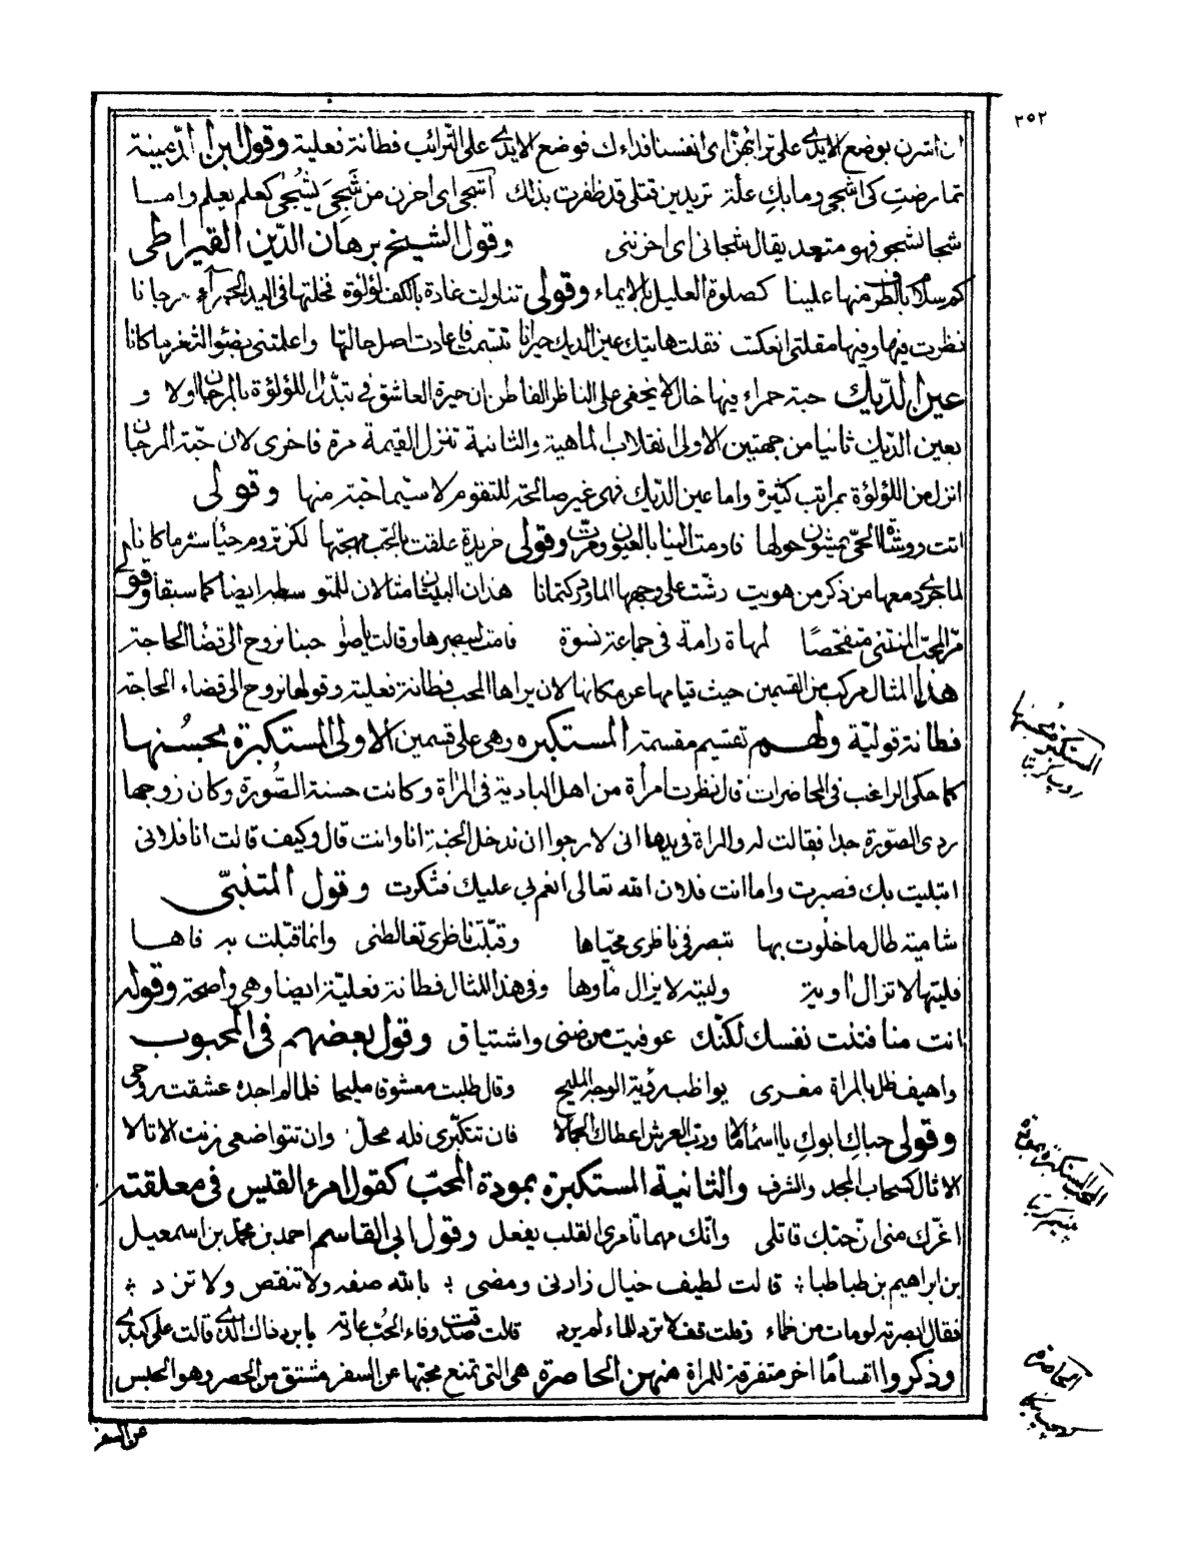 ٢٥٢
ان اشرن بوضع الايدى على ترائبهن اى انفسنا فداءك فوضع الايدى على الترائب فطانة فعلية وقول ابن الدمينة
تمارضتِ كى اشجى ومابكِ علة تريدين قتلى قد ظفرت بذلك اشجى اى احزن من شَجِىَ يَشْجٰى كعلم يعلم واما
شجا يشجو فهو متعد يقال شجانى اى احزننى وقول الشيخ برهان الدّين القيراطى
كم سلام بالطرف منها علينا كصلوة العليل بالايماء وقولى تناولت غادة بالكف لؤلؤة فخلتها فى اليد الحمراء مرجانا
نظرت فيها وفيها مقلتى انعكست فقلت هاتيك عين الديك حيرانا تبسمت فاعادت اصل حالتها واعلمتنى بضوء الثغر ما كانا
عين الدّيك حبة حمراء فيها خال لا يخفى على الناظر الفاطن ان حيرة العاشق فى تبدّل اللؤلؤة بالمرجان اولا و
بعين الديك ثانيا من جهتين الاولى انقلاب الماهية والثانية تنزل القيمة مرة فاخرى لان حبّة المرجان
انزل من اللؤلؤة بمراتب كثيرة واما عين الدّيك فهى غير صالحة للتقوم لا سيّما حبّة منها وقولى
اتت وروشاة الحىّ يمشون حولها فاومت الينا بالعيون ومرّت وقولى خريدة علقت بالحب مهجتها لكن تروم حياءً ستر ما كانا
لما جرى دمعها من ذكر من هويت رشّت على وجهها الماورد كتمانا هذان البيتان مثالان للمتوسطة ايضا كما سبقا وقولى
مرّ المحب المنتنى متفحصًا لمهاة رامة فى جماعة نسوة قامت ليبصرها وقالت يا صواحبنا نروح الى قضا الحاجة
هذا المثال مركب من القسمين حيث قيامها عن مكانها لان يراها المحب فطانة فعلية وقولها نروح الى قضاء الحاجة
فطانة قوليّة ولهم تقسيم مقسمته المستكبره وهى على قسمين الاولى المستكبرة بحسُنها
كما حكى الراغب فى المحاضرات قال نظرت امرأة من اهل البادية فى المراة وكانت حسنة الصُورة وكان زوجها
ردى الصّورة جدا فقالت له والمراة فى يدها انى لارجوا ان ندخل الجنة انا وانت قال وكيف قالت انا فلانى
ابتليت بك فصبرت واما انت فلان الله تعالى انعم بى عليك فشكرت وقول المتنبّى
شامية طال ما خلوت بها تبصر فى ناظرى محيّاها وقبّلت ناظرى تغالطنى وانما قبّلت به فاها
فليتها لا تزال اوية وليته لا يزال مأوها وفى هذا المثال فطانة فعليّة ايضا وهى واضحة وقوله
انت منا فتنت نفسك لكنّك عوفيت من ضنى واشتياق وقول بعضهم فى المحبوب
واهيف ظل بالمراة مغرى يواظب رؤية الوجه المليح وقال طلبت معشوقا مليحا فلما لم اجده عشقت روحى
وقولى حباكِ ابوكِ يا اسماء مالا وربّ العرش اعطاك الجمالا فان تتكبّرى فله محلّ وان تتواضعى زنت الاثالا
الاثال كسحاب المجد والشرف والثانية المستكبرة بمودة المحب كقول امرء القيس فى معلقته
اغرّك منى ان حبّك قاتلى وانّك مهما تامرى القلب يفعل وقول ابى القاسم احمد بن محمّد بن اسمعيل
بن ابراهيم بن طباطبا قالت لطيف خيال زارنى ومضى بالله صفه ولا تنقص ولا تزد
فقال ابصرته لو مات من ظماء وقلت قف لا ترد للماء لم يرد قالت صدقت وفاء الحُب عادته يا برد ذاك الذى قالت على كبدى
وذكروا اقسامًا اخر متفرقة للمراة منهن الحاصرة هى التى تمنع محبّها عن السفر مشتق من الحصر وهو الحبس
عن السفر
المستكبرة بحُسنها
روپ گربتا
المستكبرة بمودة المحب
پيم گربتا
الحاصرة